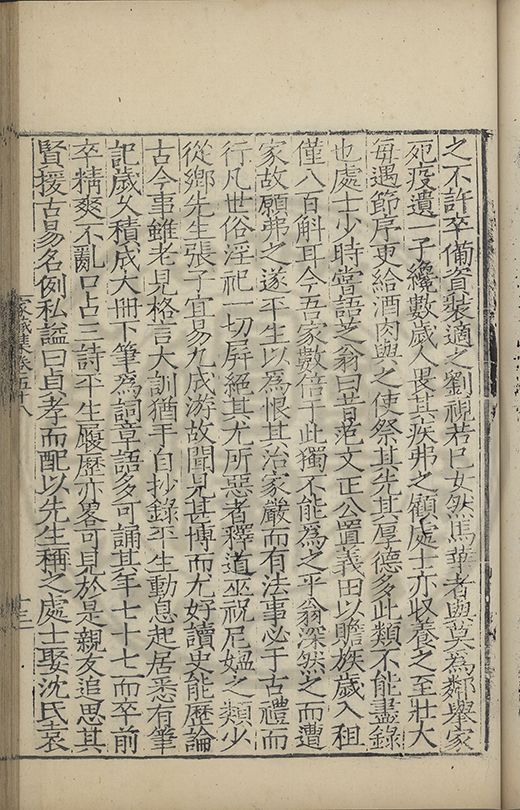 之不許卒備資裝適之劉視若已女然馬華者與莫為鄰舉家
死疫遺一子纔數歲人畏其疾弗之顧處士亦收養之至壯大
每遇節序更給酒肉與之使祭其先其厚德多此類不能盡錄
也處士少時嘗語芝翁曰昔范文正公置義田以贍族歲入租
僅八百斛耳今吾家數倍于此獨不能為之乎翁深然之而遭
家故願弗之遂平生以為恨其治家嚴而有法事必于古禮而
行凡世俗淫祀一切屏絕其尤所惡者釋道巫祝尼媼之類少
從鄉先生張子宜易九成游故聞見甚博而尤好讀史能歷論
古今事雖老見格言大訓猶手自抄錄平生動息起居悉有筆
記歲久積成大冊下筆為詞章語多可誦其年七十七而卒前
卒精爽不亂口占三詩平生履歷亦畧可見於是親友追思其
賢援古易名例私謚曰貞孝而配以先生稱之處士娶沈氏袁